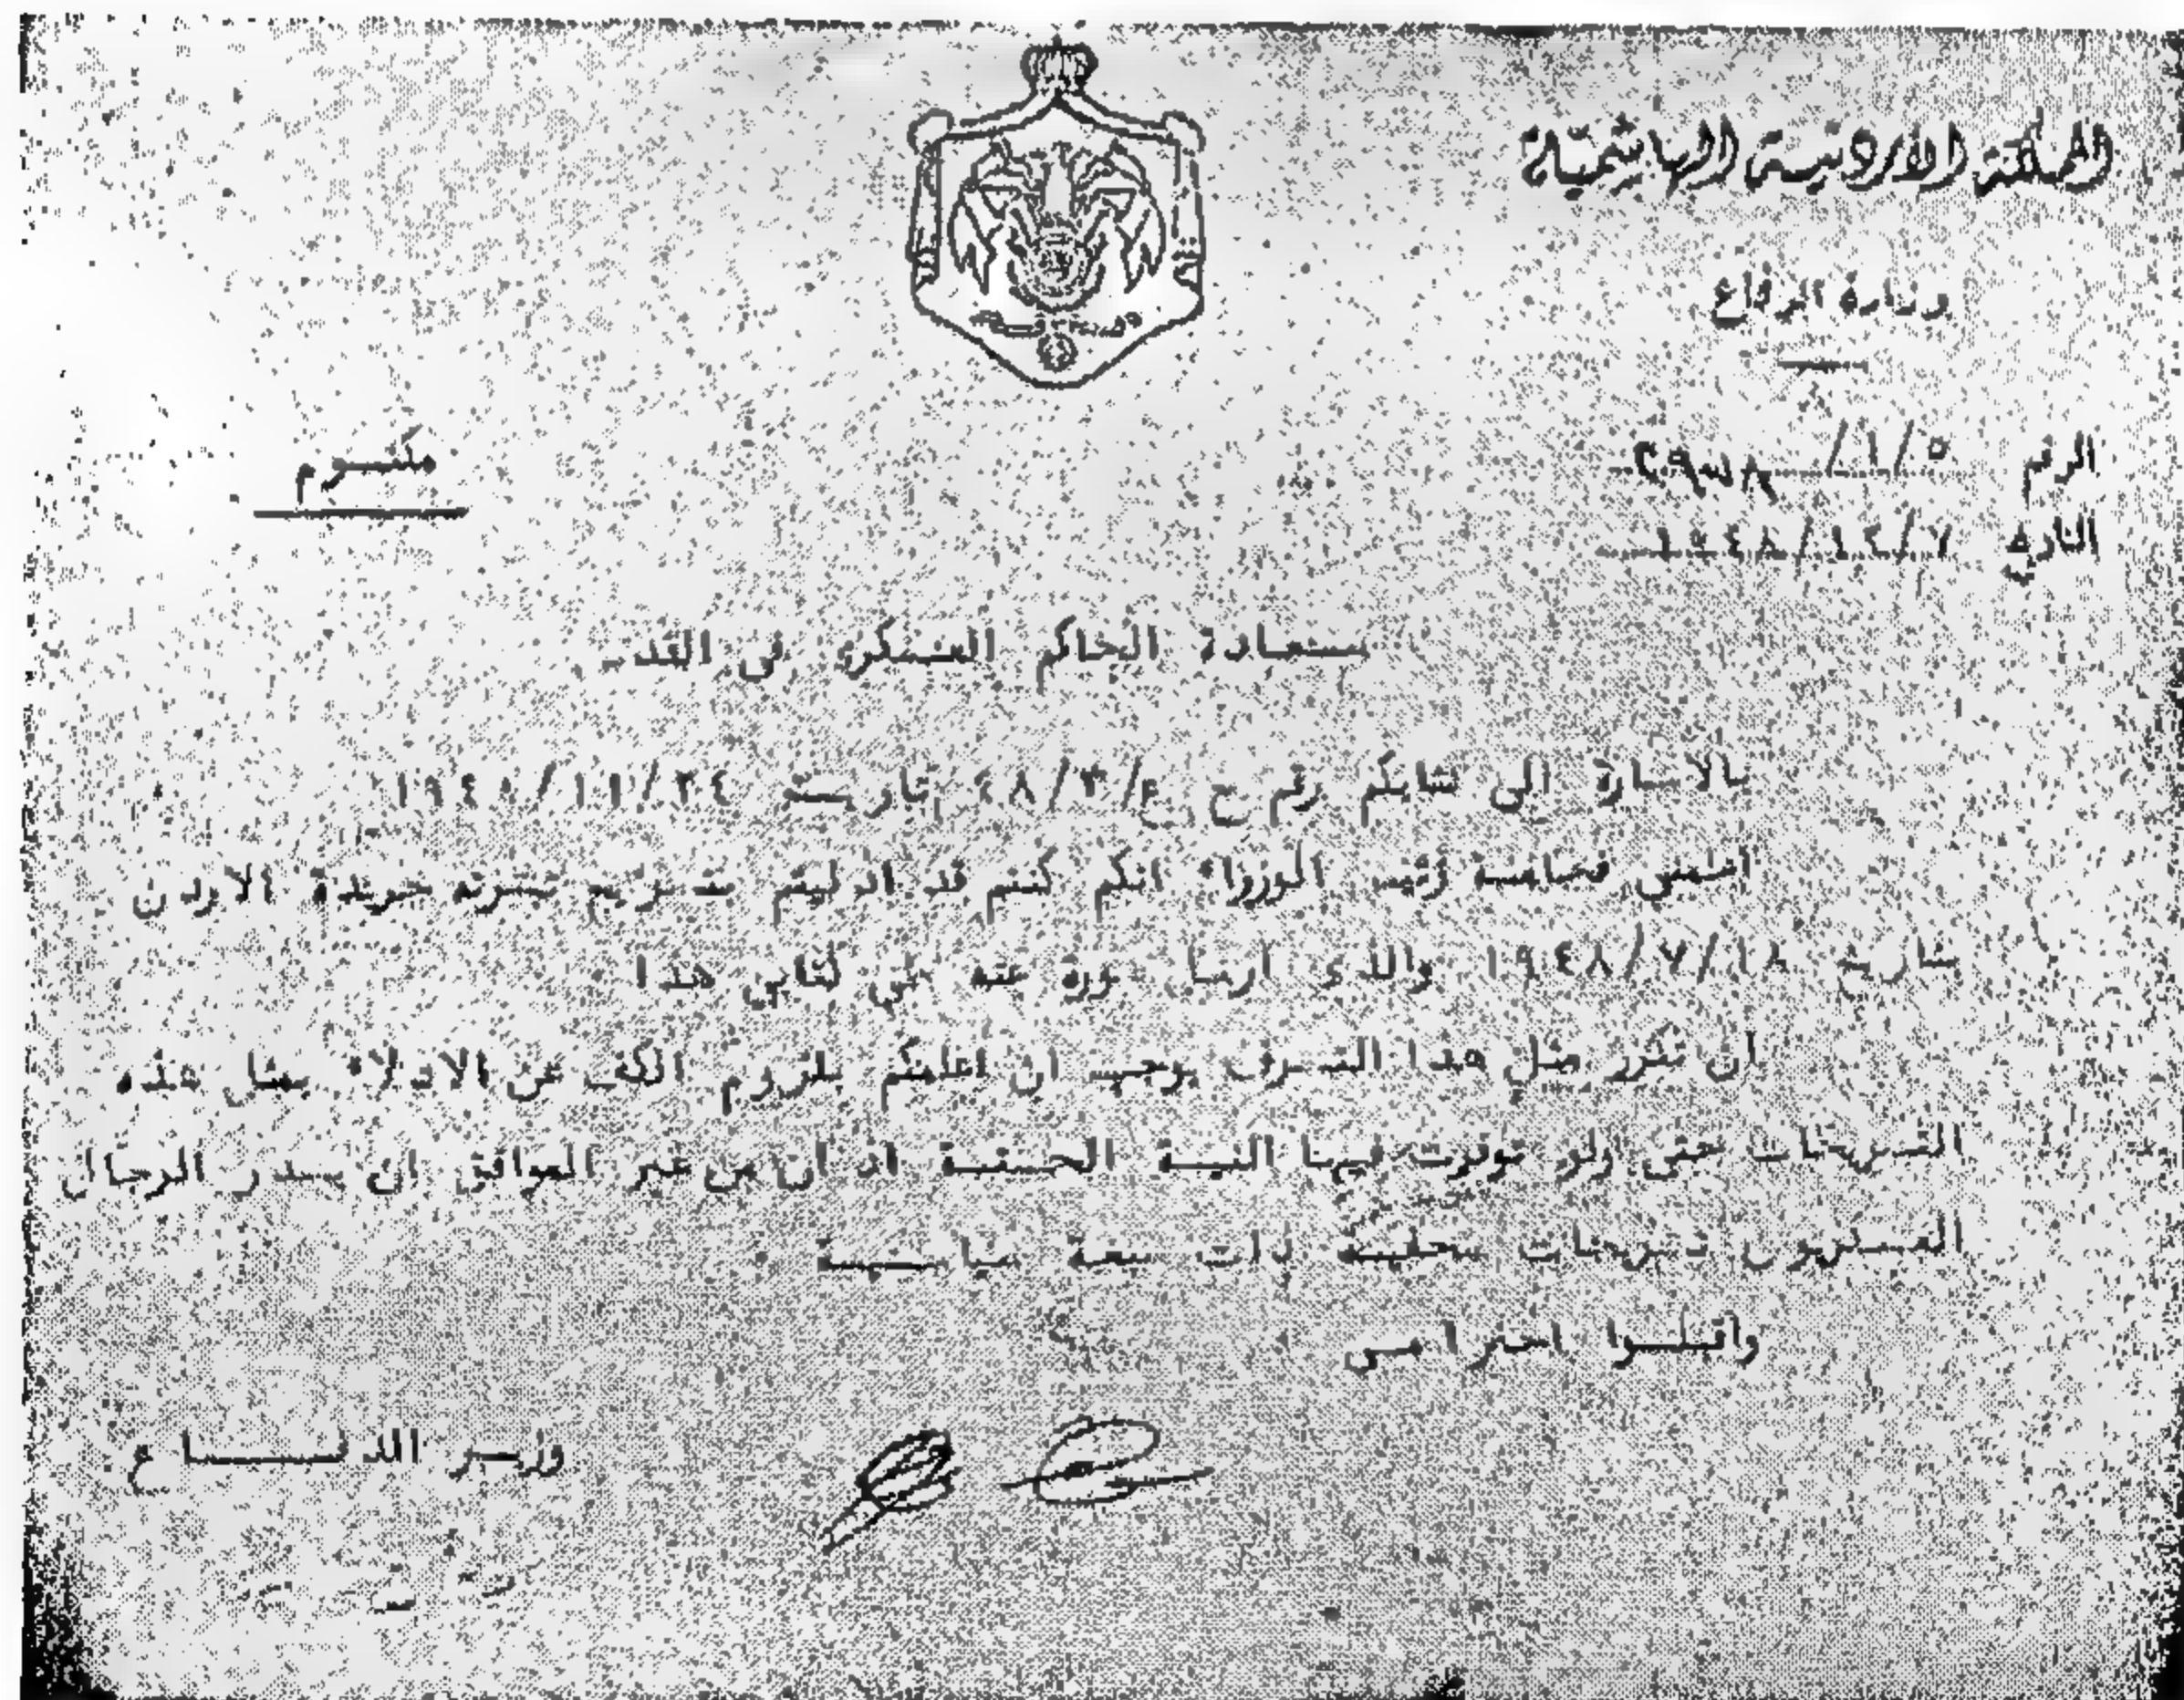 المملكة الأردنية الهاشمية
وزارة الدفاع
الرقم ٥/١/
التاريخ ٧/١٢/١٩٤٨
مكتوم
سعادة الحاكم العسكري في القدس
بالاشارة الى كتابكم رقم ح ع/٣/٤٨ بتاريخ ٢٤/١١/١٩٤٨
فخامة رئيس الوزراء انكم كنتم قد ادليتم بتصريح نشرته جريدة الاردن
بتاريخ ١٨/٧/١٩٤٨ والذي ارسل صورة عنه طي كتابي هذا
ان تكرر مثل هذا التصرف يوجب ان اعلمكم بلزوم الكف عن الادلاء بمثل هذه
التصريحات حتى ولو توفرت فيها النية الحسنة اذ ان من غير الموافق ان يصدر الرجال
العسكريون تصريحات صحفية ذات صبغة سياسية
واقبلوا احترامي
وزير الدفاع